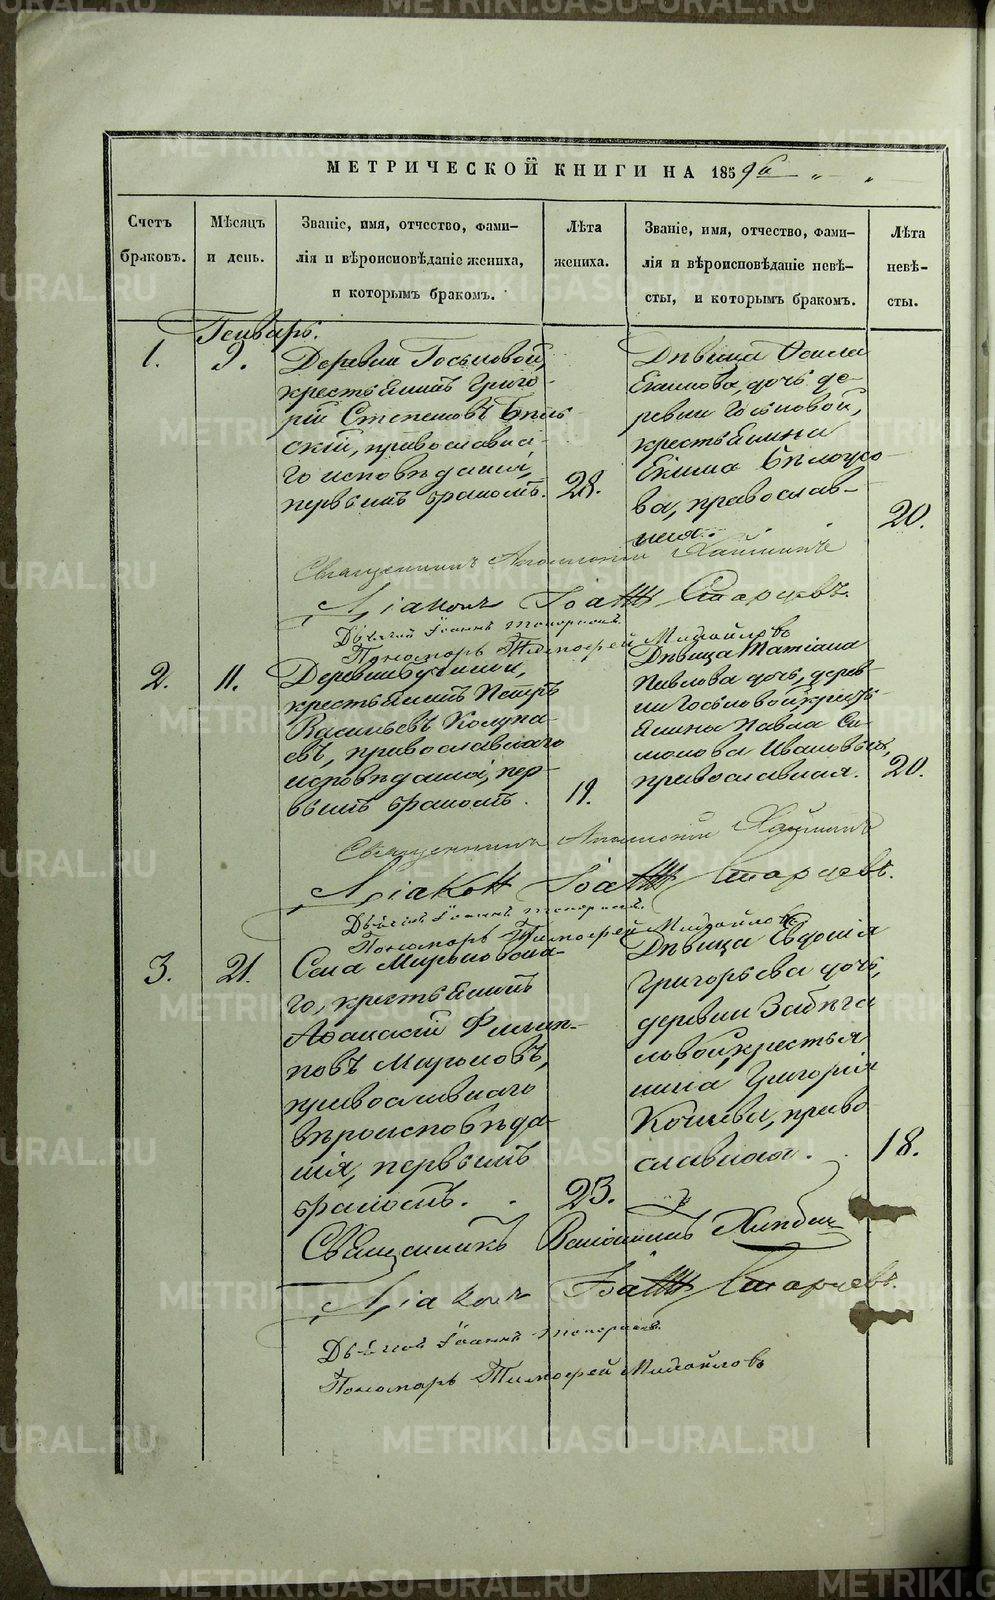 МЕТРИЧЕСКОЙ КНИГИ НА 1859й
Счетъ браковъ.
Мѣсяцъ и день.
Званіе, имя, отчество, фами-
лія и вѣроисповѣданіе жениха,
и которымъ бракомъ.
Лѣта
жениха.
Званіе, имя, отчество, фами-
лія и вѣроисповѣданіе невѣ-
сты, и которымъ бракомъ.
Лѣта
невѣ-
сты.
Генварь.
1.
9.
Деревни Госьковой,
крестьянинъ Григо-
рій Степановъ
скій, православна-
го исповѣданія,
первымъ бракомъ.
28.
Дѣвица
Екимова дочь, де-
ревни Госьковой,
крестьянина
Екима Бѣлоусо-
ва, православ-
ная.
20.
Священникъ Аполлоній Хайминъ
Діаконъ Іоаннъ Старцевъ.
Дьячекъ Іоаннъ Топорковъ.
Пономарь Тимофей Михайловъ
2.
11.
Деревни
крестьянинъ Петръ
Васильевъ Колупа-
евъ, православнаго
исповѣданія, пер-
вымъ бракомъ.
19.
Дѣвица Татіана
Павлова дочь, дерев-
ни Госьковой, кресть-
янина Павла Си-
монова Ивановыхъ,
православная.
20.
Священникъ Аполлоній Хайминъ
Діаконъ Іоаннъ Старцевъ.
Дьячекъ Іоаннъ Топорковъ.
Пономарь Тимофей Михайловъ
3.
21.
Села Мироновска-
го, крестьянинъ
Афанасій Филип-
повъ Мироновъ,
православнаго
вѣроисповѣда-
нія, первымъ
бракомъ.
23.
Дѣвица Евдокія
Григорьева дочь,
деревни
ловой, крестья
нина Григорія
Кочнева, право
славная.
18.
Священникъ Хлѣбинъ
Діаконъ Іоаннъ Старцевъ.
Дьячекъ Іоаннъ Топорковъ.
Пономарь Тимофей Михайловъ
METRIKI.GASO-URAL.RU